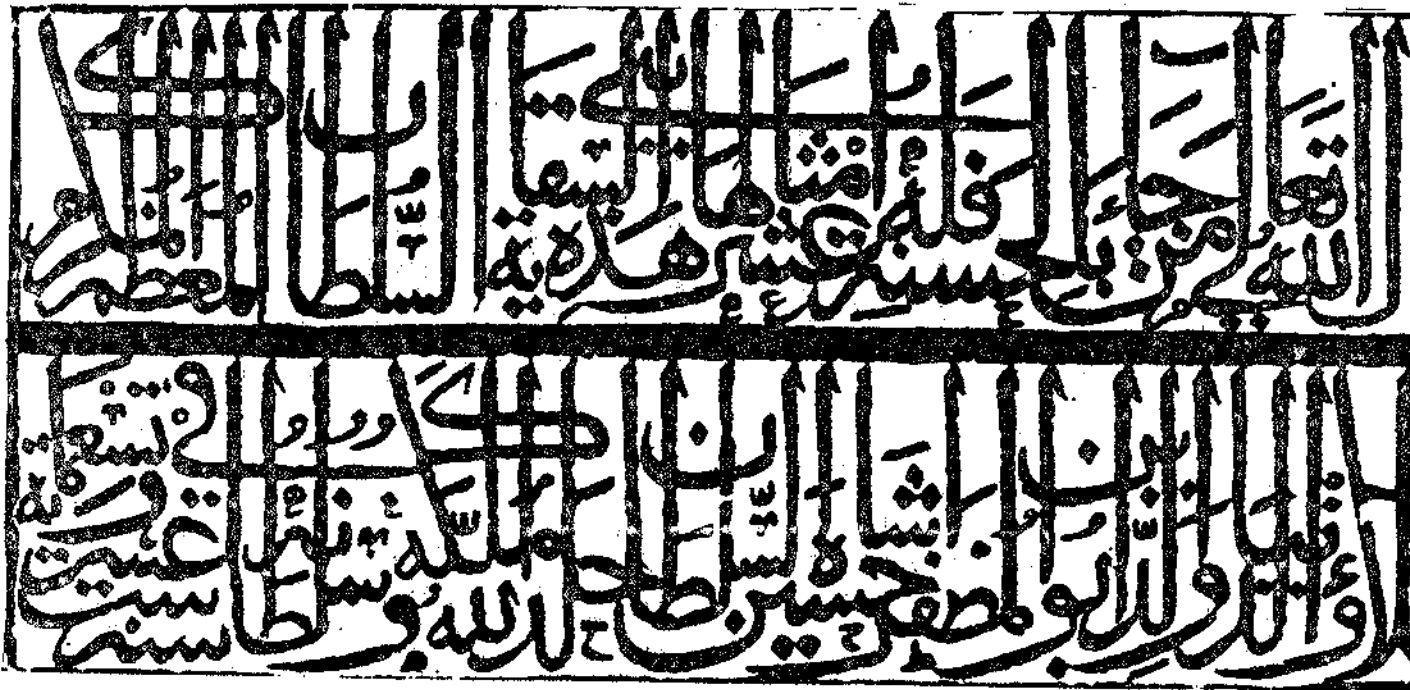 الله تعالى من جاء بالحسنة فله عشر أمثالها بنى هذه السقاية السلطان المعظم المكرم
الدنيا والدين ابو المظفر حسين شاه السلطان خلد الله ملكه وسلطانه في سنة ست عشر وتسعماية